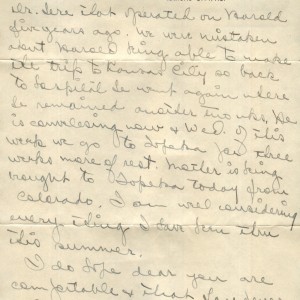 Dr. Dere that operated on Harold
six years ago. We were mistaken
about Harold being able to make
the trip to Kansas City so back
to hospital he went again where
he remained another two wks. He
is convalescing now & Wed. of this
week we go to Topeka for three
weeks more of rest. Mother is being
brought to Topeka today from
Colorado. I am well considering
every thing I have been thru
this summer.
I do hope dear you are
comfortable & that